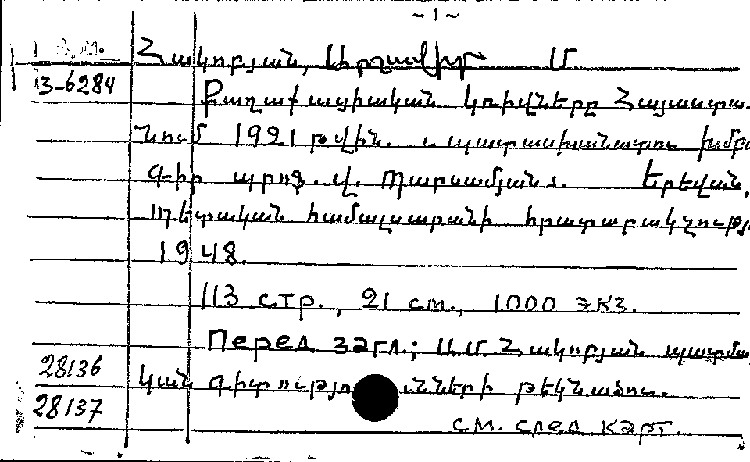 ~ 1 ~
Հակոբյան, Արշավիր Մ
3-6284
Քաղաքացիական կռիվները Հայաստա-
նում 1921 թվին. պատասխանատու խմբա
գիր պրոֆ. Վ. Պարսամյան. Երևան,
Պետական համալսարանի հրատարակչությ
1948.
113 стр., 21 см., 1000 экз.
Перед загл.; Ա.Մ. Հակոբյան պատմա
28136
կան գիտությունների թեկնածու.
28137
см. след карт.